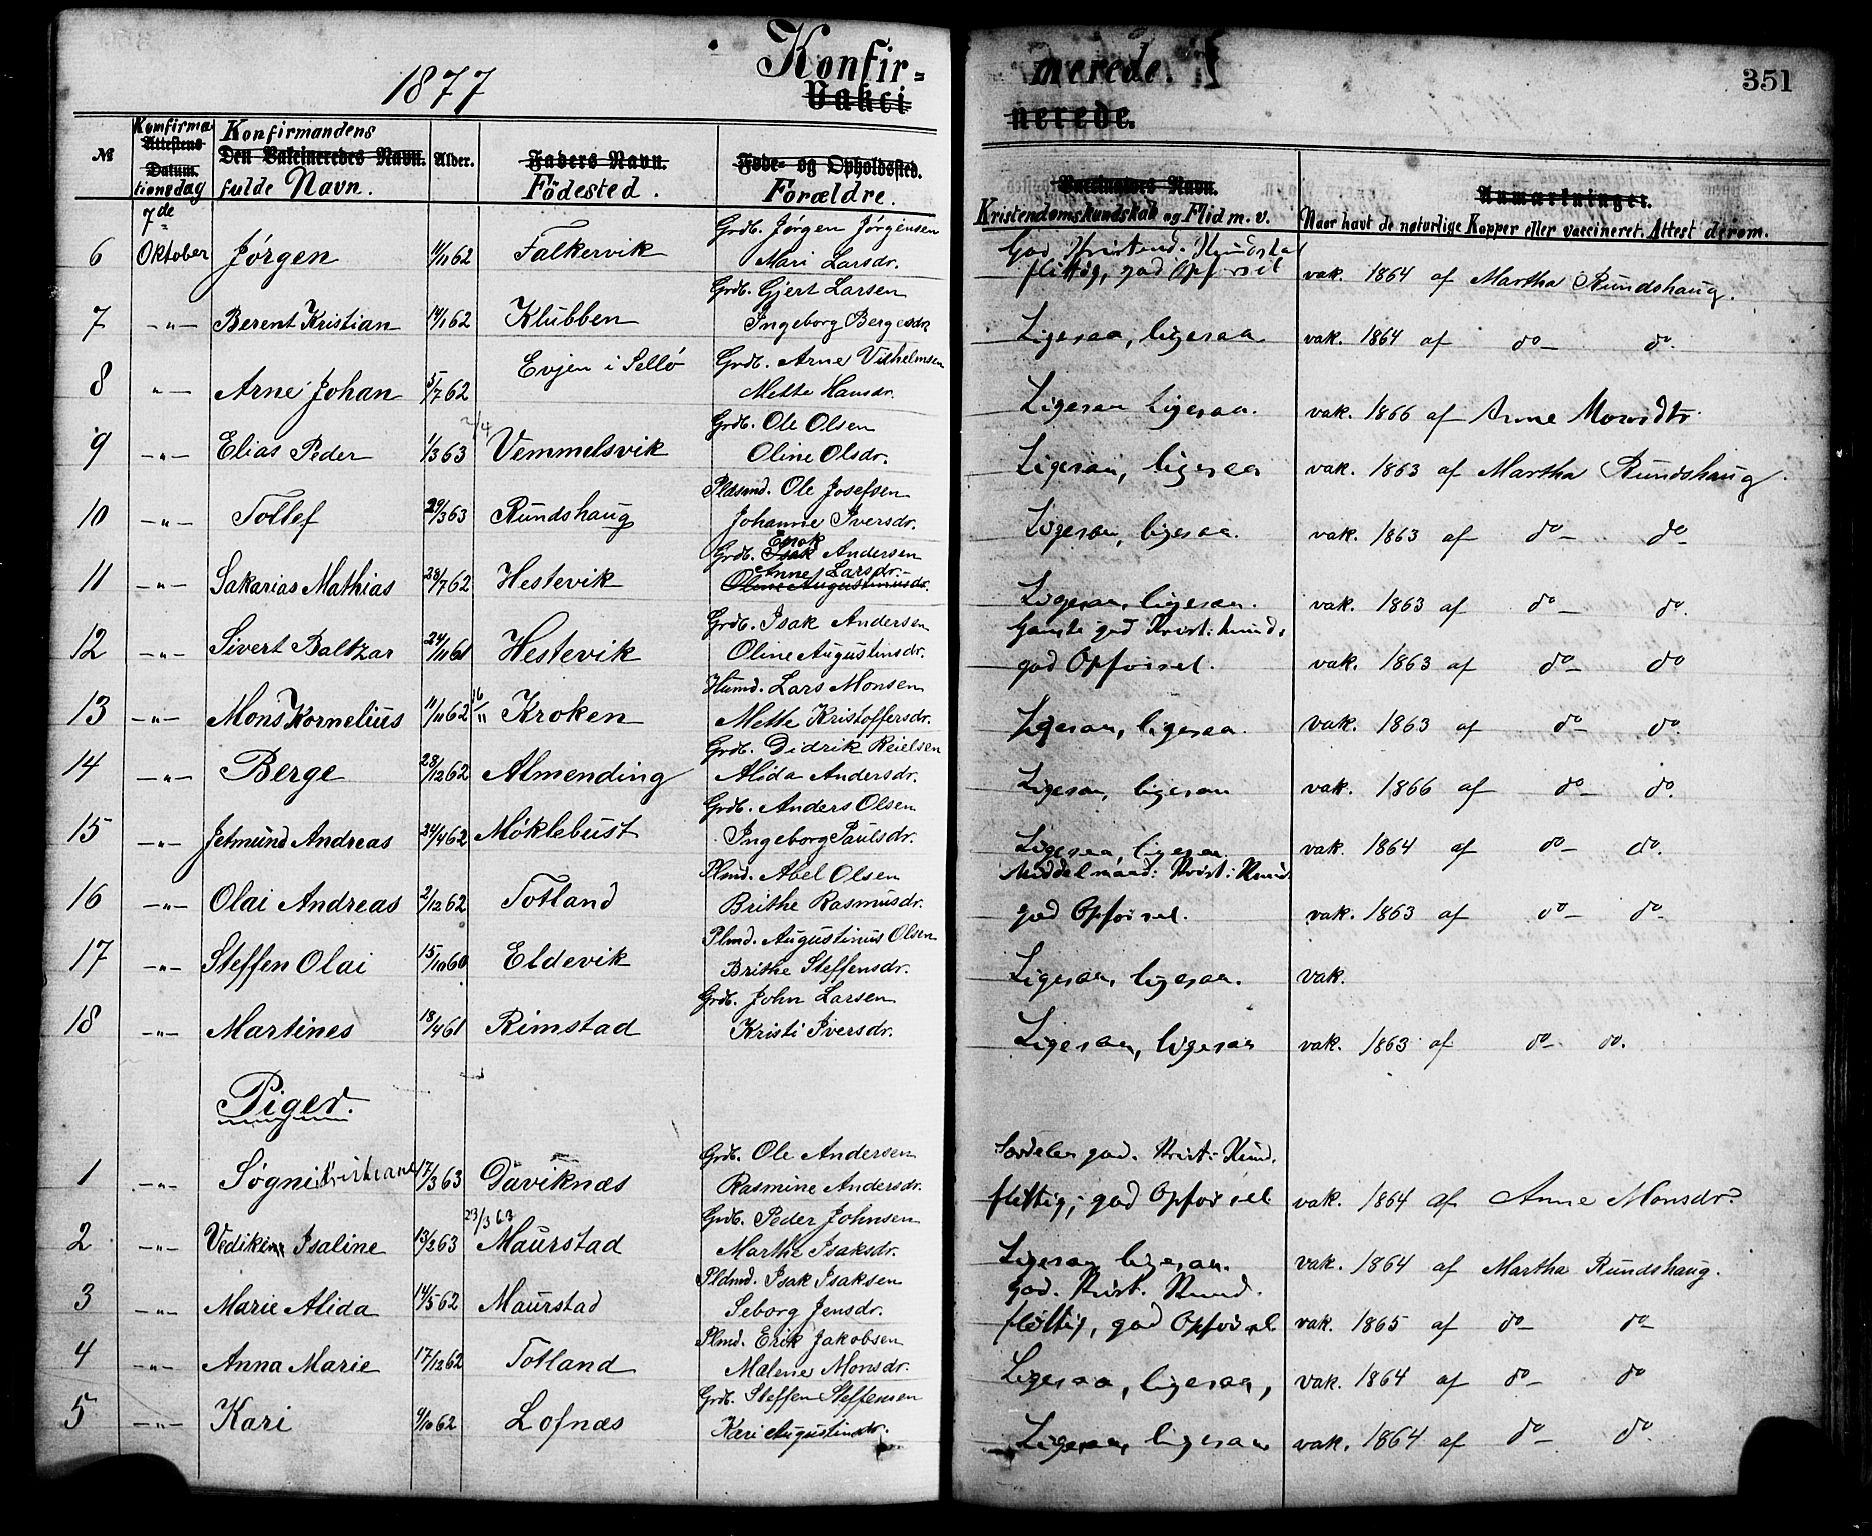 1877 Konfir= merede. 351
Vakci nerede.
№ Konfirma Attestens Datum. tionsdag Konfirmandens Den Vakcineredes Navn. fulde Navn. Alder. Faders Navn. Födested. Føde- og Opholdssted. Forældre. Vaccinators Navn. Kristendomskundskab og Flid m. v. Anmærkninger. Naar havt de naturlige Kopper eller vaccineret. Attest derom.
7de Grdb. Jørgen Jörgensen God Kristend. Kundska
6 Oktober Jörgen 4/11 62 Falkervik Mari Larsdr. flittig, god Opførsel vak. 1864 af Martha Rundshaug.
Grdb. Gjert Larsen
7 -"- Berent Kristian 14/1 62 Klubben Ingeborg Bergesdr Ligesaa, ligesaa vak. 1864 af do- do.
Grdb. Arne Vilhelmsen
8 "- Arne Johan 5/7 62 Evjen i Sellö Mette Hansdr. Ligesaa ligesaa. vak. 1866 af Anne Monsdtr.
2/4 Grdb. Ole Olsen
9 -"- Elias Peder 1/3 63 Vemmelsvik Oline Olsdr. Ligesaa, ligesaa vak. 1863 af Martha Rundshaug.
Pldsmd. Ole Josefsen
10 -"- Tollef 29/3 63 Rundshaug Johanne Iversdr. Ligesaa, ligesaa. vak. 1863 af do- do-
Enok
Grdb. Isak Andersen
Anne Larsdr.-
11 -"- Sakarias Mathias 28/7 62 Hestevik Oline Augustinusdr. Ligesaa, ligesaa. vak. 1863 af do- do.
Grdb. Isak Andersen Ganske god Krist: Kund:
12 -"- Sivert Baltzar 24/11 61 Hestevik Oline Augustinsdr. god Opførsel. vak. 1863 af do- do
Husmd. Lars Monsen
13 -"- Mons Kornelius 11/11 62 16/11 Kroken Mette Kristoffersdr. Ligesaa, ligesaa. vak. 1863 af do- do.
Grdb. Didrik Reielsen
14 -"- Berge 28/12 62 Almending Alida Andersdr. Ligesaa, ligesaa vak. 1866 af do- do.
Grdb. Anders Olsen
15 -"- Jetmund Andreas 24/4 62 Möklebust Ingeborg Paulsdr. Ligesaa, ligesaa vak. 1864 af do- do.
Plmd. Abel Olsen Middelmaad: Krist: Kund.
16 -"- Olai Andreas 2/12 62 Totland Brithe Rasmusdr. god Opførsel. vak. 1863 af do- do-
Plmd. Augustinus Olsen
17 -"- Steffen Olai 15/10 60 Eldevik Brithe Steffensdr. Ligesaa, ligesaa. vak.
Grdb. John Larsen
18 -"- Martines 18/4 61 Rimstad Kristi Iversdr. Ligesaa, ligesaa vak. 1863 af do- do.
Piger.
Grdb. Ole Andersen Særdeles god. Krist: Kund.
1 -"- Søgni Kristiane 17/3 63 Daviknæs Rasmine Andersdr. flittig, god Opførsel vak. 1864 af Anne Monsdr.
23/3 63 Grdb. Peder Johnsen
2 -"- Vedikine Isaline 13/2 63 Maurstad Marthe Isaksdr. Ligesaa ligesaa. vak. 1864 af Martha Rundshaug.
Pldmd. Isak Isaksen God. Krist. Kund.
3 -"- Marie Alida 14/5 62 Maurstad Seborg Jensdr. flittig, god Opførsel vak. 1865 af do- do-
Plmd. Erik Jakobsen
4 -"- Anna Marie 17/12 62 Totland Malene Monsdr. Ligesaa, ligesaa, vak. 1864 af do- do
Grdb. Steffen Steffensen
5 -"- Kari 9/10 62 Lofnæs Kari Augustinsdr. Ligesaa, ligesaa vak. 1864 af do- do.